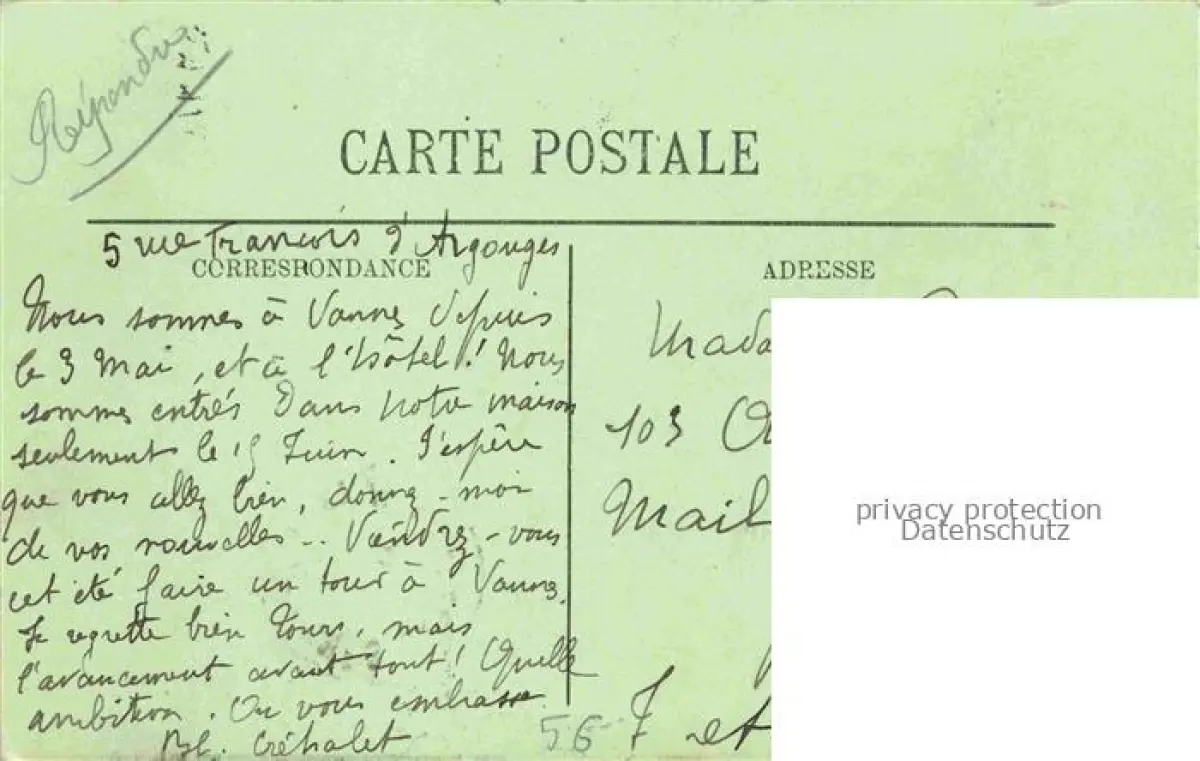 Répondre
CARTE POSTALE
5 rue François d'Argouges
CORRESPONDANCE
Nous sommes à Vannes depuis
le 3 Mai, et à l'hôtel! Nous
sommes entrés dans notre maison
seulement le 15 Juin. J'espère
que vous allez bien, donnez-moi
de vos nouvelles... Viendrez-vous
cet été faire un tour à Vannes.
Je regrette bien Tours, mais
l'avancement avant tout! Quelle
ambition. On vous embrasse.
Bl.
ADRESSE
Mada
103
Mail
et
56
privacy protection
Datenschutz